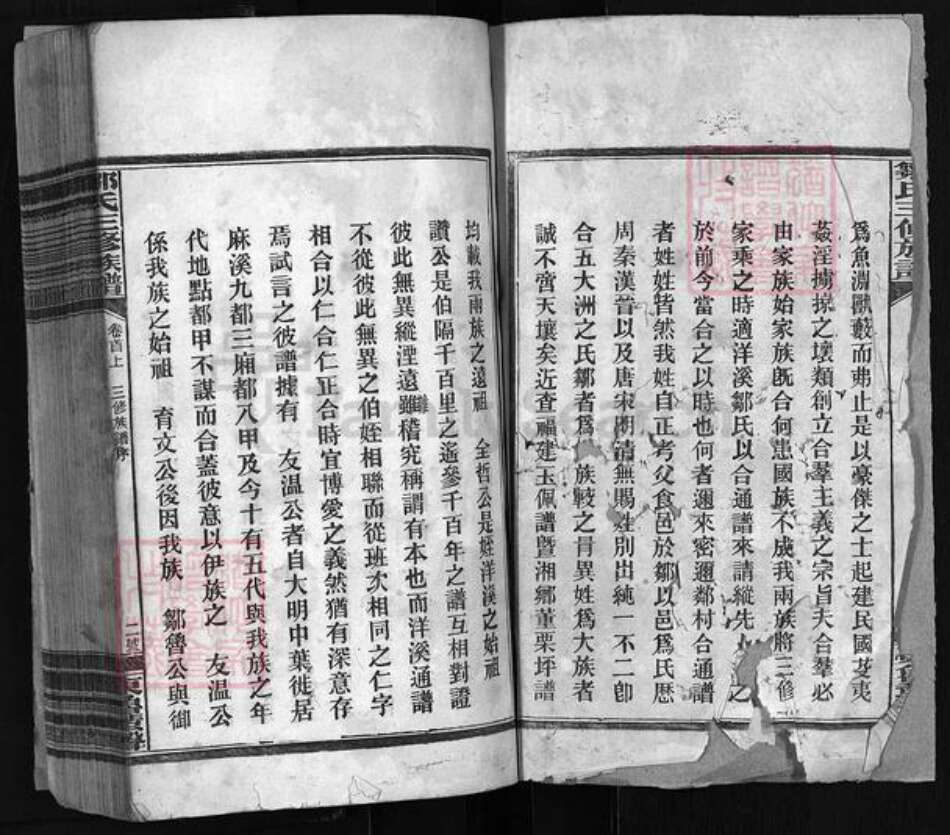 爲魚淵獸藪而弗止是以豪傑之士起建民國芟夷
姦淫擄掠之壞類創立合羣主義之宗旨夫合羣必
由家族始家族旣合何患國族不成我兩族將三修
家乘之時適洋溪鄒氏以合通譜來請縱先之
於前今當合之以時也何者邇來密邇鄰村合通譜
者姓姓皆然我姓自正考父食邑於鄒以邑爲氏歷
周秦漢晉以及唐宋明清無賜姓別出純一不二卽
合五大洲之氏鄒者爲一族較之冐異姓爲大族者
誠不啻天壤矣近查福建玉佩譜曁湘鄉董栗坪譜
鄒氏三修族譜
卷首上
三修族譜序
二
均載我兩族之遠祖 全哲公是姪洋溪之始祖
讚公是伯隔千百里之遙參千百年之譜互相對證
彼此無異縱湮遠難稽究稱謂有本也而洋溪通譜
不從彼此無異之伯姪相聯而從班次相同之仁字
相合以仁合仁正合時宜博愛之義然猶有深意存
焉試言之彼譜據有 友温公者自大明中葉徙居
麻溪九都三廂都八甲及今十有五代與我族之年
代地點都甲不謀而合蓋彼意以伊族之 友温公
係我族之始祖 育文公後因我族 鄒魯公與御